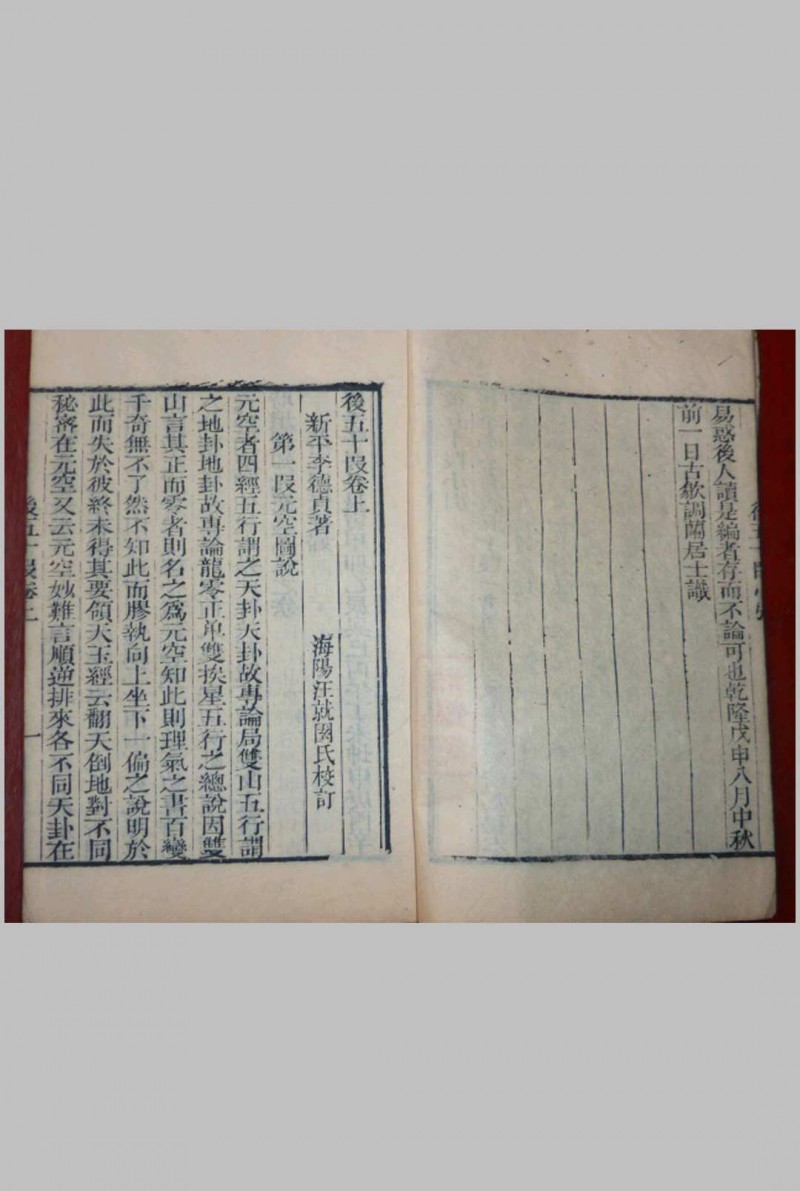 易惑後人讀是編者存而不論可也乾隆戊申八月中秋
前一日古歙調蘭居士識
後五十段卷上
新平李德貞著 海陽汪就園氏校訂
第一段元空圖說
元空者四經五行謂之天卦天卦故專論局雙山五行謂
之地卦地卦故專論龍零正单雙挨星五行之總說因雙
山言其正而零者則名之爲元空知此則理氣之書百變
千奇無不了然不知此而膠執向上坐下一偏之說明於
此而失於彼終未得其要領天玉經云翻天倒地對不同
秘宻在元空又云元空妙難言順逆排來各不同天卦在
後五十段卷上 一